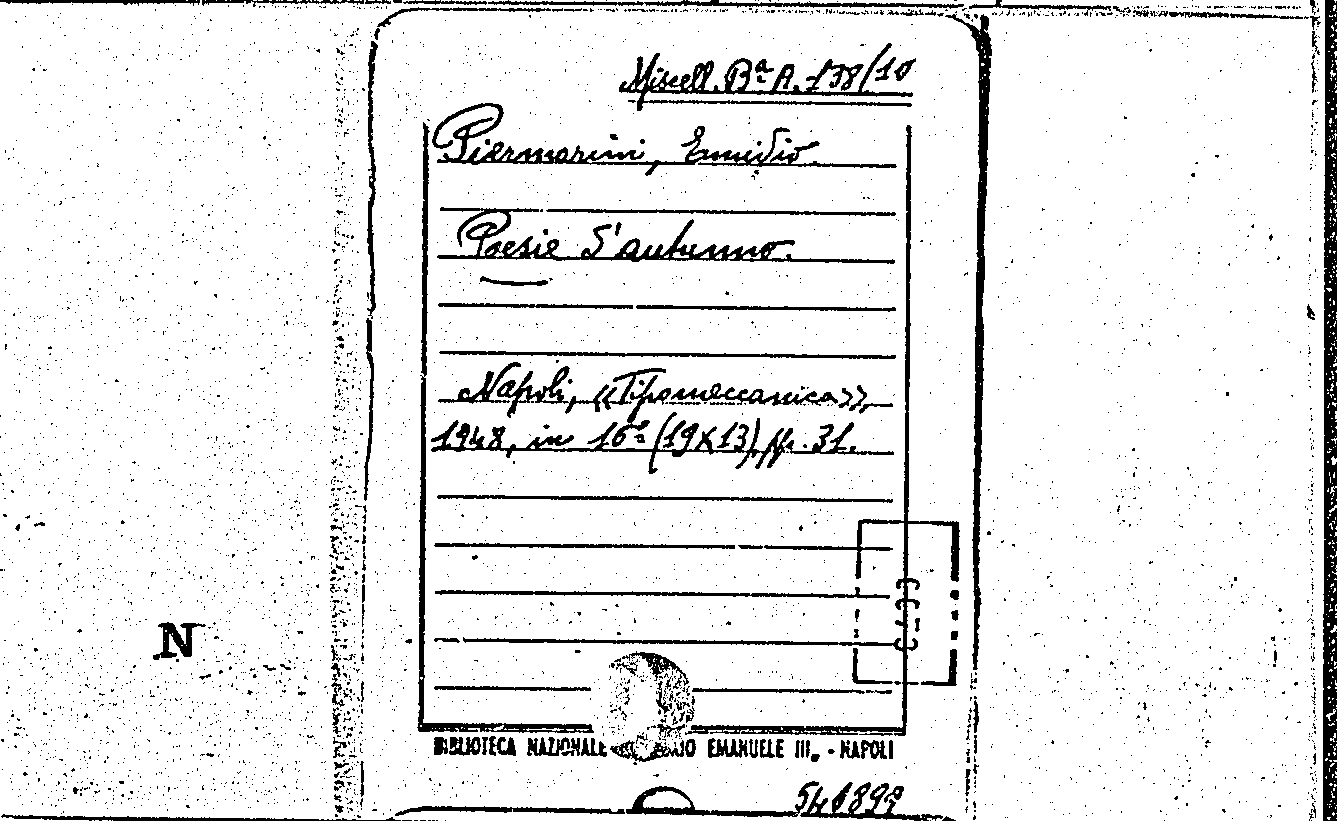 Miscell. Bª A. 138/10
Piermarini, Emidio.
Poesie d'autunno.
Napoli, «Tipomeccanica»,
1948, in 16º (19X13), pp. 31.
N
BIBLIOTECA NAZIONALE EMANUELE III. - NAPOLI